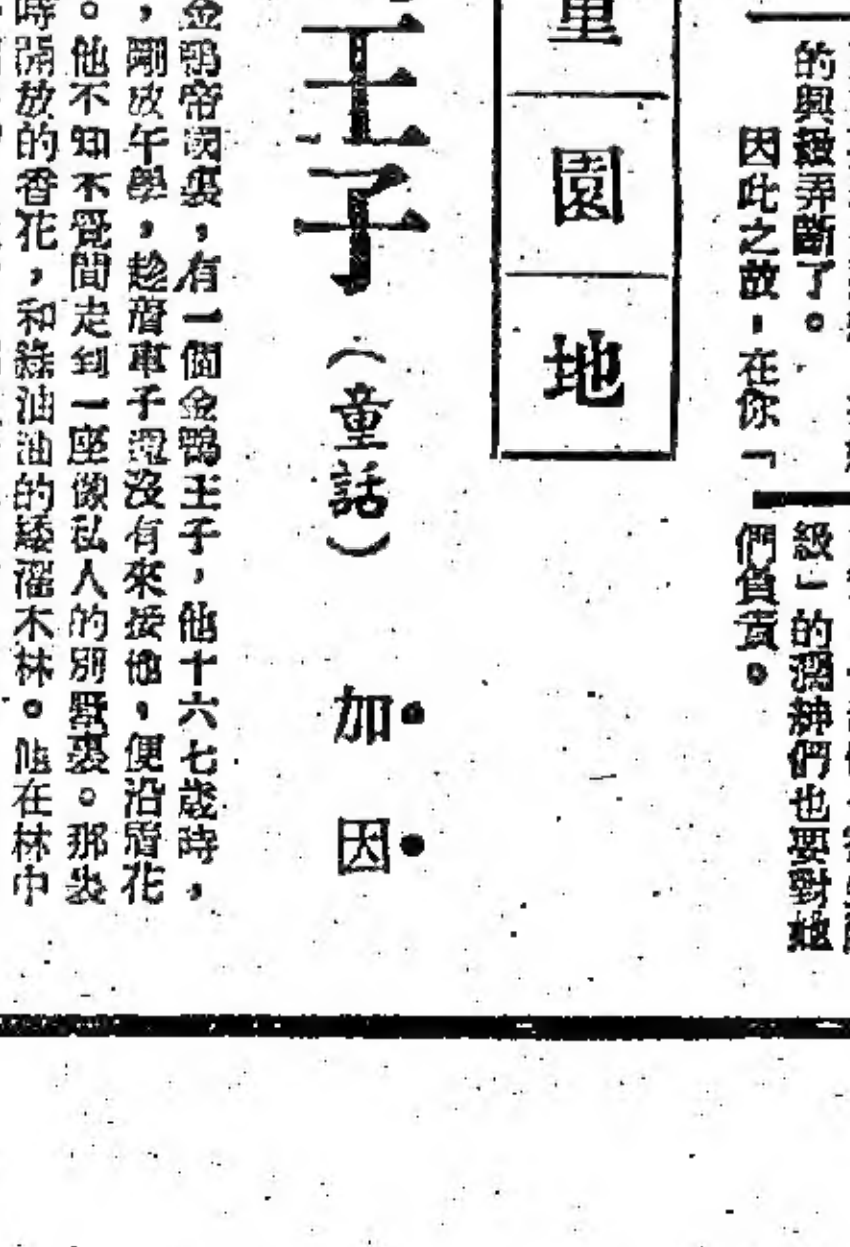 的興緻弄斷了。
因此之故，在你「
級」的濶紳們也要對她
們負責。
童園地
王子
（童話）
加因
金鴨帝國裏，有一個金鴨王子，他十六七歲時，
，剛放午學，趁着車子還沒有來接他，便沿着花
。他不知不覺間走到一座像私人的別墅裏。那裝
時開放的香花，和綠油油的矮灌木林。他在林中